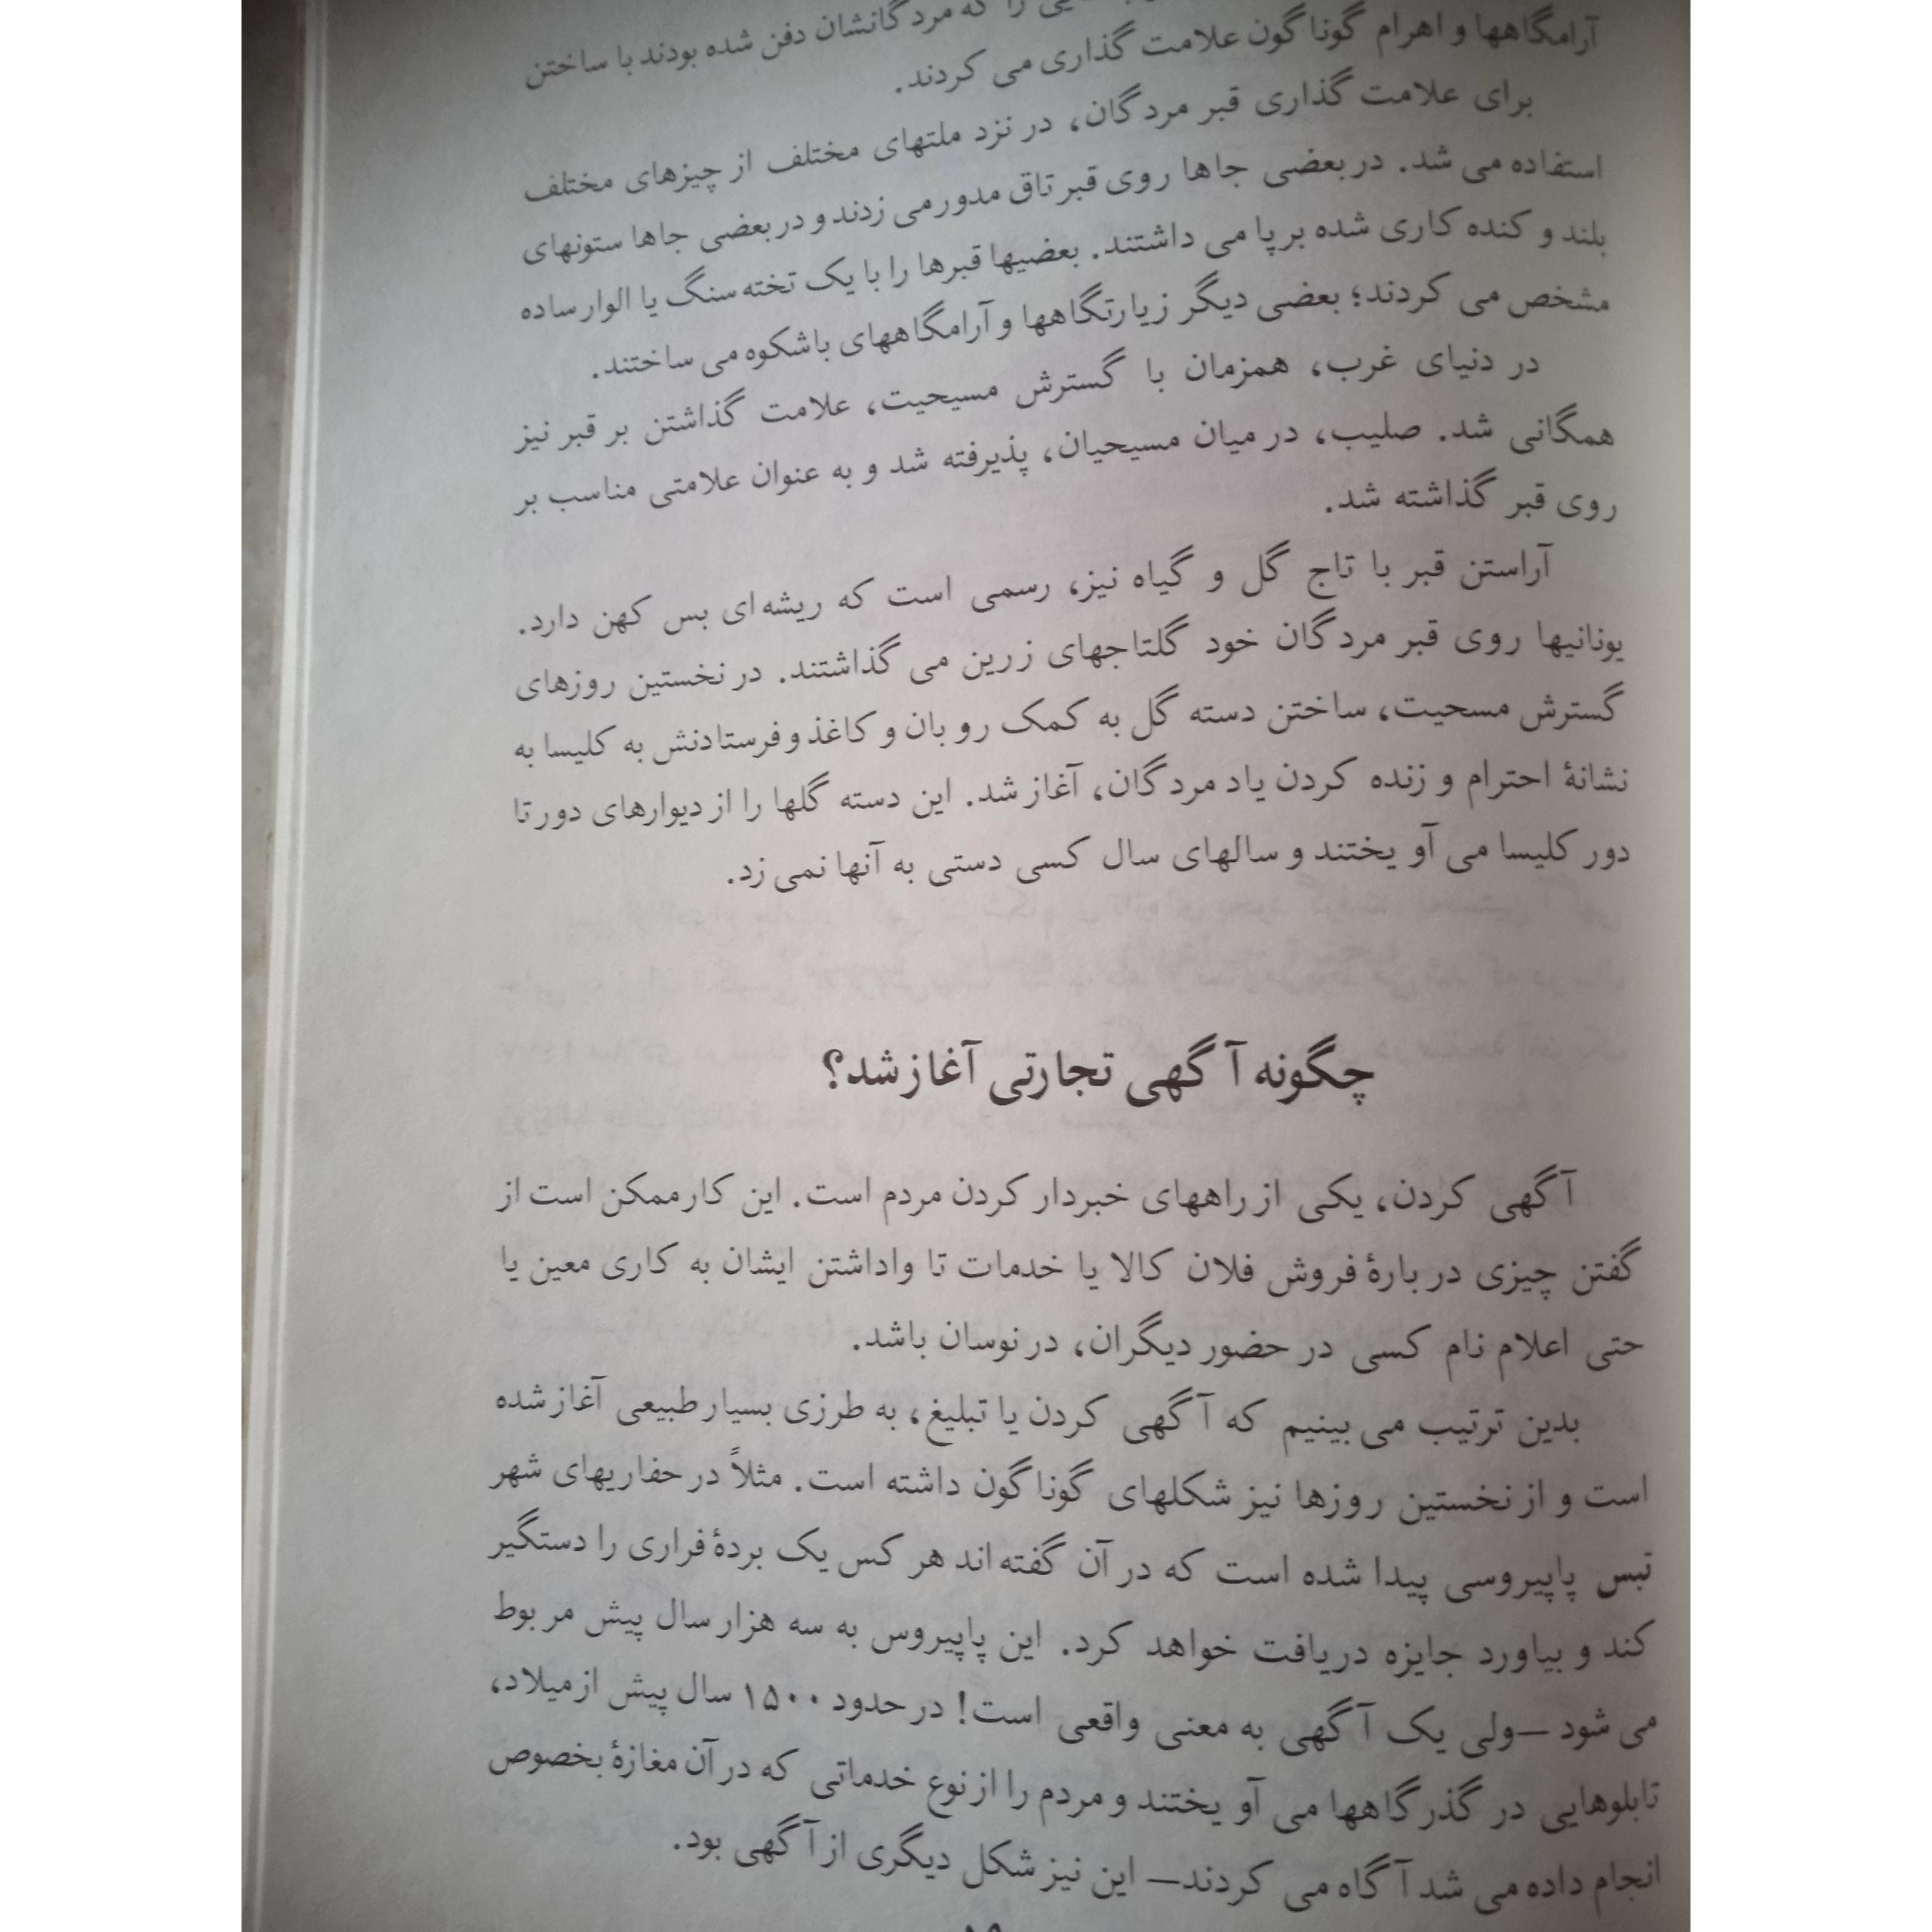 را که مردگانشان دفن شده بودند با ساختن
آرامگاهها و اهرام گوناگون علامت گذاری می کردند.
برای علامت گذاری قبر مردگان، در نزد ملتهای مختلف از چیزهای مختلف
استفاده می شد. در بعضی جاها روی قبر تاق مدور می زدند و در بعضی جاها ستونهای
بلند و کنده کاری شده بر پا می داشتند. بعضیها قبرها را با یک تخته سنگ یا الوار ساده
مشخص می کردند؛ بعضی دیگر زیارتگاهها و آرامگاههای باشکوه می ساختند.
در دنیای غرب، همزمان با گسترش مسیحیت، علامت گذاشتن بر قبر نیز
همگانی شد. صلیب، در میان مسیحیان، پذیرفته شد و به عنوان علامتی مناسب بر
روی قبر گذاشته شد.
آراستن قبر با تاج گل و گیاه نیز، رسمی است که ریشه ای بس کهن دارد.
یونانیها روی قبر مردگان خود گلتاجهای زرین می گذاشتند. در نخستین روزهای
گسترش مسحیت، ساختن دسته گل به کمک روبان و کاغذ و فرستادنش به کلیسا به
نشانهٔ احترام و زنده کردن یاد مردگان، آغاز شد. این دسته گلها را از دیوارهای دور تا
دور کلیسا می آویختند و سالهای سال کسی دستی به آنها نمی زد.
چگونه آگهی تجارتی آغاز شد؟
آگهی کردن، یکی از راههای خبردار کردن مردم است. این کار ممکن است از
گفتن چیزی در بارهٔ فروش فلان کالا یا خدمات تا واداشتن ایشان به کاری معین یا
حتی اعلام نام کسی در حضور دیگران، در نوسان باشد.
بدین ترتیب می بینیم که آگهی کردن یا تبلیغ، به طرزی بسیار طبیعی آغاز شده
است و از نخستین روزها نیز شکلهای گوناگون داشته است. مثلاً در حفاریهای شهر
تبس پاپیروسی پیدا شده است که در آن گفته اند هر کس یک بردهٔ فراری را دستگیر
کند و بیاورد جایزه دریافت خواهد کرد. این پاپیروس به سه هزار سال پیش مربوط
می شود —ولی یک آگهی به معنی واقعی است! در حدود ۱۵۰۰ سال پیش از میلاد،
تابلوهایی در گذرگاهها می آویختند و مردم را از نوع خدماتی که در آن مغازهٔ بخصوص
انجام داده می شد آگاه می کردند— این نیز شکل دیگری از آگهی بود.